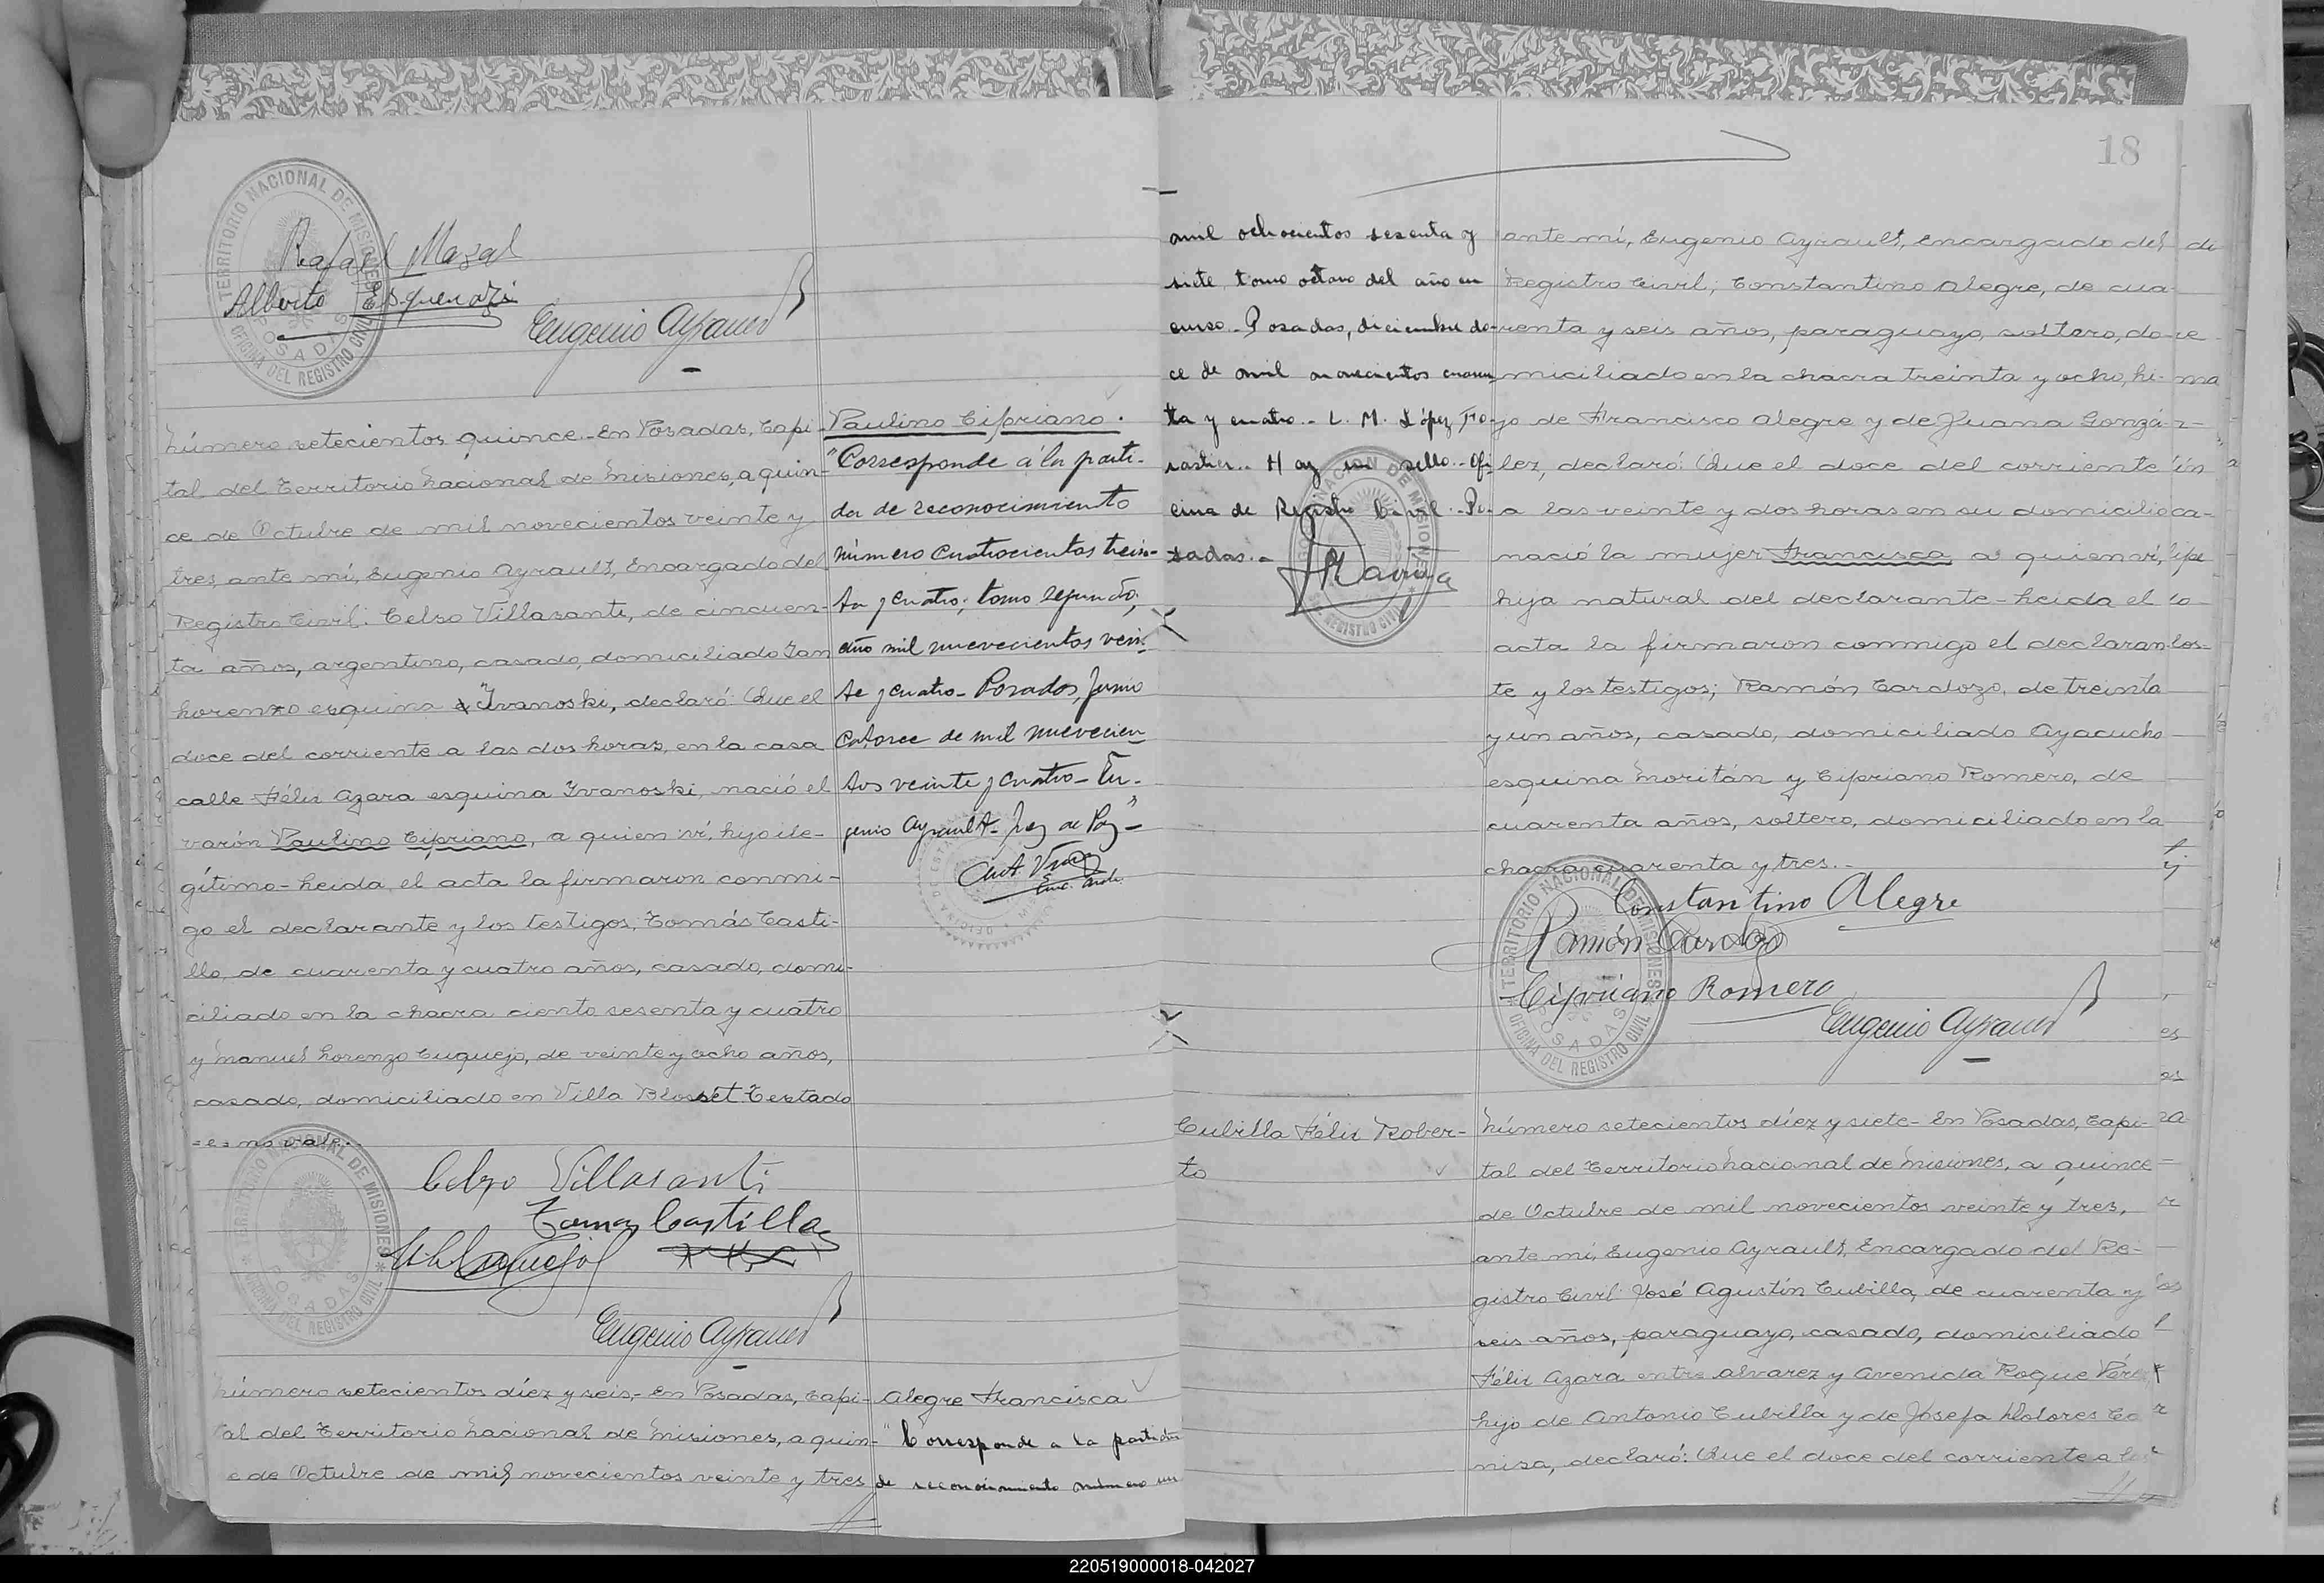 Rafael Mazal
Alberto Esquenazi
Eugenio Ayrault
TERRITORIO NACIONAL DE MISIONES
OFICINA DEL REGISTRO CIVIL
POSADAS
Número setecientos quince.- En Posadas, Capi-
tal del Territorio Nacional de Misiones, a quin-
ce de Octubre de mil novecientos veinte y
tres, ante mí, Eugenio Ayrault, Encargado del
Registro Civil: Celso Villasanti, de cincuen-
ta años, argentino, casado, domiciliado San
Lorenzo esquina Ivanoski, declaró: Que el
doce del corriente a las dos horas, en la casa
calle Félix Azara esquina Ivanoski, nació el
varón Paulino Cipriano, a quien ví, hijo ile-
gítimo - Leida el acta la firmaron conmi-
go el declarante y los testigos, Tomás Casti-
llo, de cuarenta y cuatro años, casado, domi-
ciliado en la chacra ciento sesenta y cuatro
y Manuel Lorenzo Cuquejo, de veinte y ocho años,
casado, domiciliado en Villa Blosset. Testado
- e - no vale.-
Celso Villasanti
Tomas Castilla
Eugenio Ayrault
TERRITORIO NACIONAL DE MISIONES
OFICINA DEL REGISTRO CIVIL
POSADAS
Paulino Cipriano.
"Corresponde á la parti-
da de reconocimiento
número cuatrocientos trein-
ta y cuatro, tomo segundo,
año mil nuevecientos vein-
te y cuatro - Posadas, Junio
catorce de mil nuevecien
tos veinte y cuatro - Eu-
genio Ayrault - Juez de Paz -"
Número setecientos diez y seis,- En Posadas, Capi-
tal del Territorio Nacional de Misiones, a quin-
ce de Octubre de mil novecientos veinte y tres
Alegre Francisca
"Corresponde a la partida
de reconocimiento número un
18
mil ochocientos sesenta y
siete, tomo octavo del año en
curso.- Posadas, diciembre do-
ce de mil novecientos cuaren
ta y cuatro.- L. M. López Fo-
rastier.- Hay un sello.- Ofi
cina de Registro Civil.- Po-
sadas.-
ante mí, Eugenio Ayrault, Encargado del
Registro Civil; Constantino Alegre, de cua-
renta y seis años, paraguayo, soltero, do-
miciliado en la chacra treinta y ocho, hi-
jo de Francisco Alegre y de Juana Gonzá-
lez, declaró: Que el doce del corriente
a las veinte y dos horas en su domicilio
nació la mujer Francisca a quien ví,
hija natural del declarante - Leida el
acta la firmaron conmigo el declaran
te y los testigos; Ramón Cardozo, de treinta
y un años, casado, domiciliado Ayacucho
esquina Moritán y Cipriano Romero, de
cuarenta años, soltero, domiciliado en la
chacra cuarenta y tres.-
Constantino Alegre
Ramón Cardozo
Cipriano Romero
Eugenio Ayrault
TERRITORIO NACIONAL DE MISIONES
OFICINA DEL REGISTRO CIVIL
POSADAS
Cubilla Félix Rober-
to
Número setecientos diez y siete - En Posadas, Capi-
tal del Territorio Nacional de Misiones, a quince
de Octubre de mil novecientos veinte y tres,
ante mí, Eugenio Ayrault, Encargado del Re-
gistro Civil: José Agustín Cubilla, de cuarenta y
seis años, paraguayo, casado, domiciliado
Félix Azara entre Alvarez y Avenida Roque Pérez
hijo de Antonio Cubilla y de Josefa Dolores Ca
niza, declaró: Que el doce del corriente a las
220519000018-042027